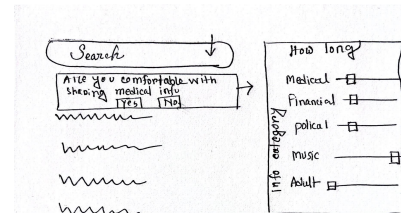 Search
Are you comfortable with
sharing medical info
Yes No
How long
Medical
Financial
polical
music
Adult